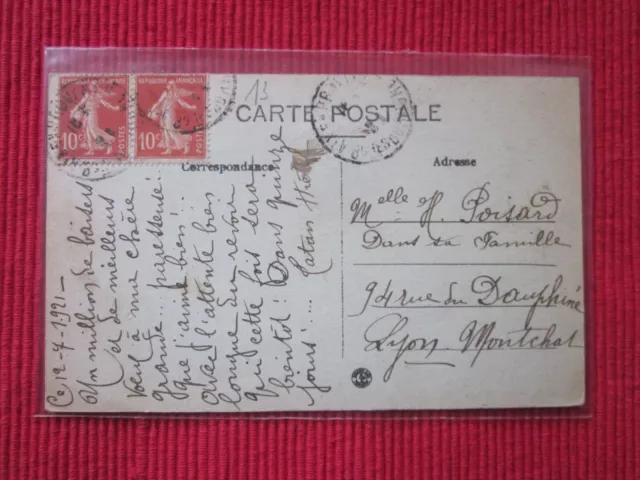 REPUBLIQUE FRANÇAISE REPUBLIQUE FRANÇAISE
10c POSTES 10c POSTES
13
CARTE POSTALE
Correspondance
Adresse
Ce, 12-7-1921-
Un million de baisers
et de meilleurs
vœu à ma chère
grande... paresseuse!
que j'aime bien!...
Que l'attente bien
longue du revoir
qui cette fois sera
bientôt! Dans quinze
jours!...
Melle H. Poisard
Dans sa Famille
94 rue du Dauphiné
Lyon-Montchat